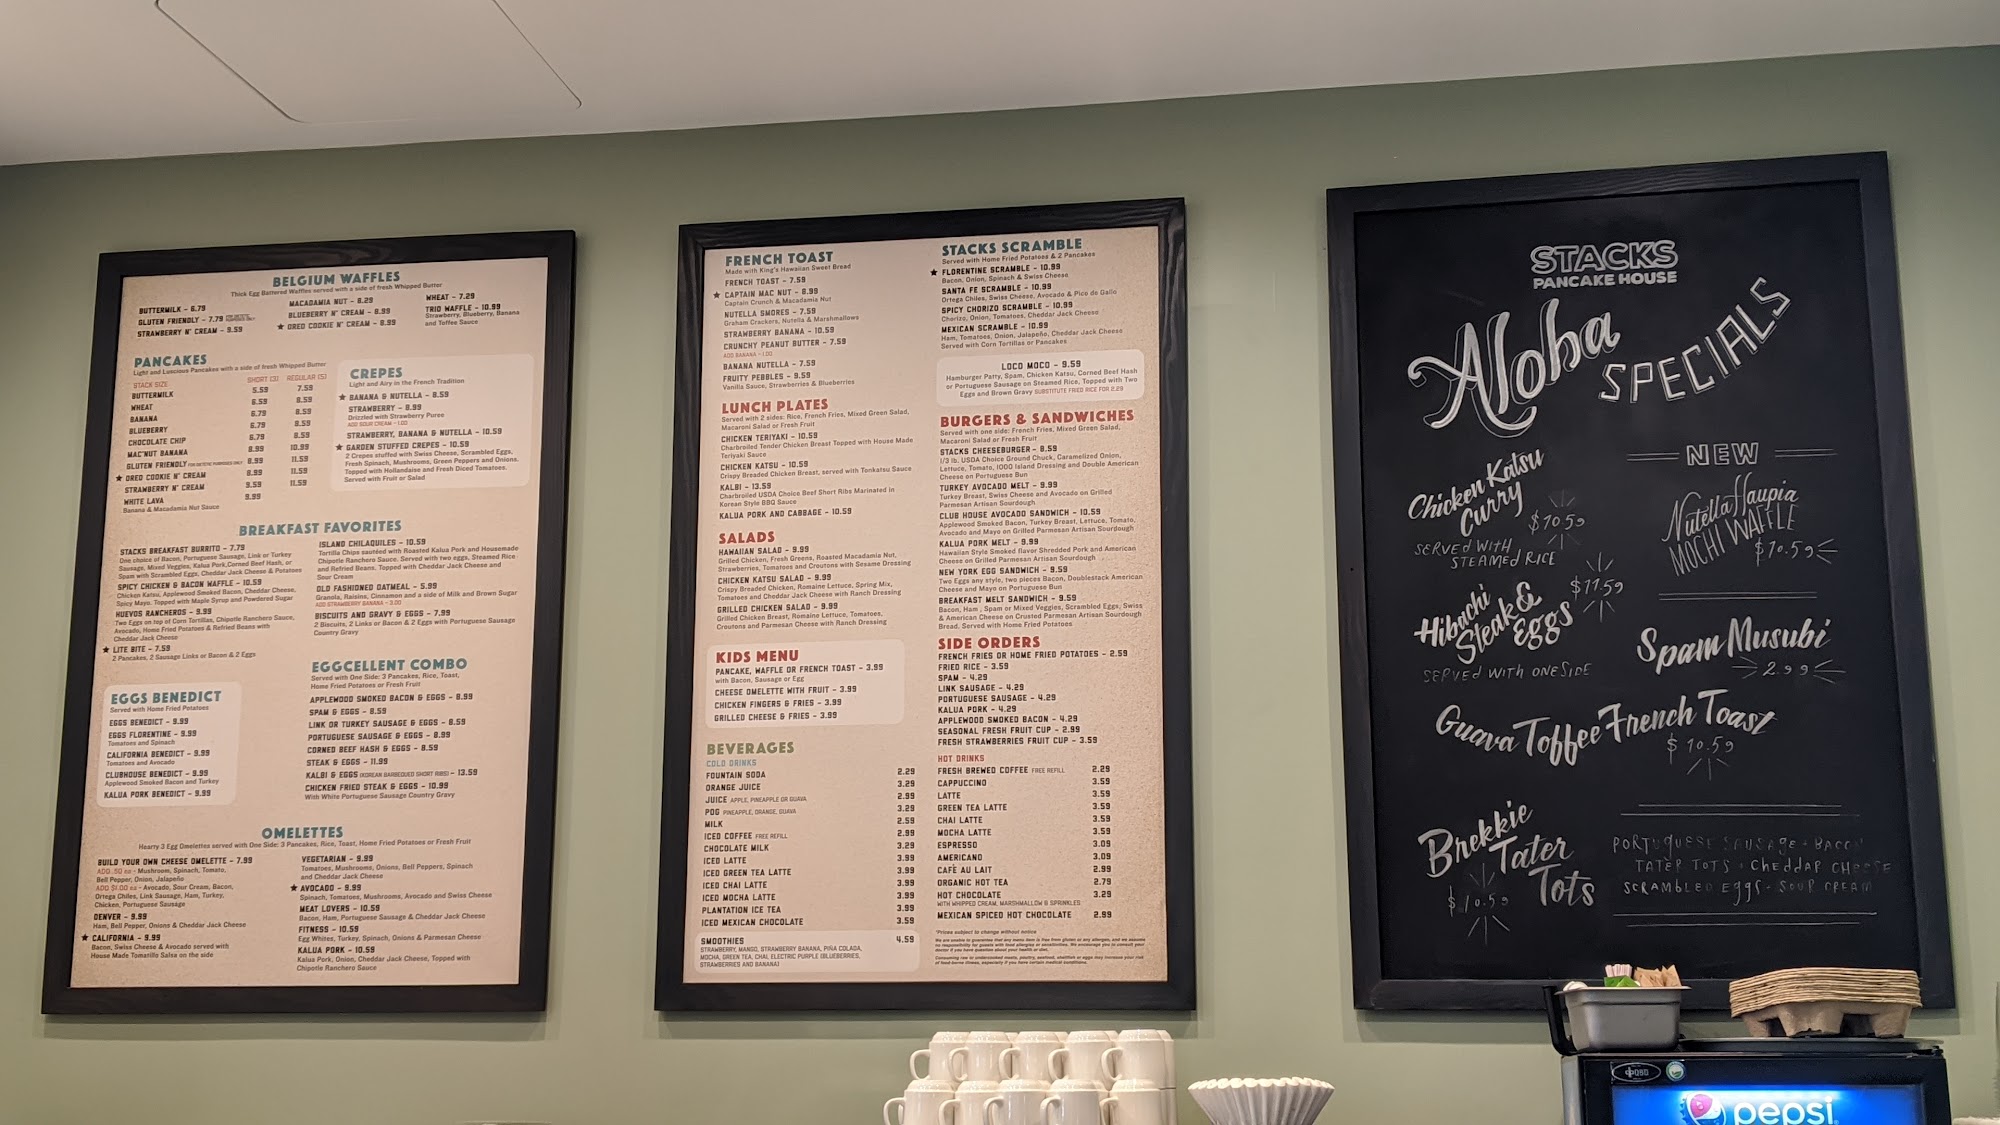 BELGIUM WAFFLES
Thick Egg Battered Waffles served with a side of fresh Whipped Butter
BUTTERMILK - 6.79
GLUTEN FRIENDLY - 7.79 FOR DIETETIC PURPOSES ONLY
STRAWBERRY N' CREAM - 9.59
MACADAMIA NUT - 8.29
BLUEBERRY N' CREAM - 8.99
★ OREO COOKIE N' CREAM - 8.99
WHEAT - 7.29
TRIO WAFFLE - 10.99
Strawberry, Blueberry, Banana
and Toffee Sauce
PANCAKES
Light and Luscious Pancakes with a side of fresh Whipped Butter
STACK SIZE SHORT (3) REGULAR (5)
BUTTERMILK 5.59 7.59
WHEAT 6.59 8.59
BANANA 6.79 8.59
BLUEBERRY 6.79 8.59
CHOCOLATE CHIP 6.79 8.59
MAC'NUT BANANA 8.99 10.99
GLUTEN FRIENDLY FOR DIETETIC PURPOSES ONLY 8.99 11.59
★ OREO COOKIE N' CREAM 8.99 11.59
STRAWBERRY N' CREAM 9.59 11.59
WHITE LAVA 9.99
Banana & Macadamia Nut Sauce
CREPES
Light and Airy in the French Tradition
★ BANANA & NUTELLA - 8.59
STRAWBERRY - 8.99
Drizzled with Strawberry Puree
ADD SOUR CREAM - 1.00
STRAWBERRY, BANANA & NUTELLA - 10.59
★ GARDEN STUFFED CREPES - 10.59
2 Crepes stuffed with Swiss Cheese, Scrambled Eggs,
Fresh Spinach, Mushrooms, Green Peppers and Onions.
Topped with Hollandaise and Fresh Diced Tomatoes.
Served with Fruit or Salad
BREAKFAST FAVORITES
STACKS BREAKFAST BURRITO - 7.79
One choice of Bacon, Portuguese Sausage, Link or Turkey
Sausage, Mixed Veggies, Kalua Pork,Corned Beef Hash, or
Spam with Scrambled Eggs, Cheddar Jack Cheese & Potatoes
SPICY CHICKEN & BACON WAFFLE - 10.59
Chicken Katsu, Applewood Smoked Bacon, Cheddar Cheese,
Spicy Mayo. Topped with Maple Syrup and Powdered Sugar
HUEVOS RANCHEROS - 9.99
Two Eggs on top of Corn Tortillas, Chipotle Ranchero Sauce,
Avocado, Home Fried Potatoes & Refried Beans with
Cheddar Jack Cheese
★ LITE BITE - 7.59
2 Pancakes, 2 Sausage Links or Bacon & 2 Eggs
ISLAND CHILAQUILES - 10.59
Tortilla Chips sautéed with Roasted Kalua Pork and Housemade
Chipotle Ranchero Sauce. Served with two eggs, Steamed Rice
and Refried Beans, Topped with Cheddar Jack Cheese and
Sour Cream
OLD FASHIONED OATMEAL - 5.99
Granola, Raisins, Cinnamon and a side of Milk and Brown Sugar
ADD STRAWBERRY BANANA - 3.00
BISCUITS AND GRAVY & EGGS - 7.99
2 Biscuits, 2 Links or Bacon & 2 Eggs with Portuguese Sausage
Country Gravy
EGGS BENEDICT
Served with Home Fried Potatoes
EGGS BENEDICT - 9.99
EGGS FLORENTINE - 9.99
Tomatoes and Spinach
CALIFORNIA BENEDICT - 9.99
Tomatoes and Avocado
CLUBHOUSE BENEDICT - 9.99
Applewood Smoked Bacon and Turkey
KALUA PORK BENEDICT - 9.99
EGGCELLENT COMBO
Served with One Side: 3 Pancakes, Rice, Toast,
Home Fried Potatoes or Fresh Fruit
APPLEWOOD SMOKED BACON & EGGS - 8.99
SPAM & EGGS - 8.59
LINK OR TURKEY SAUSAGE & EGGS - 8.59
PORTUGUESE SAUSAGE & EGGS - 8.99
CORNED BEEF HASH & EGGS - 8.59
STEAK & EGGS - 11.99
KALBI & EGGS (KOREAN BARBEQUED SHORT RIBS) - 13.59
CHICKEN FRIED STEAK & EGGS - 10.99
With White Portuguese Sausage Country Gravy
OMELETTES
Hearty 3 Egg Omelettes served with One Side: 3 Pancakes, Rice, Toast, Home Fried Potatoes or Fresh Fruit
BUILD YOUR OWN CHEESE OMELETTE - 7.99
ADD .50 ea - Mushroom, Spinach, Tomato,
Bell Pepper, Onion, Jalapeño
ADD $1.00 ea - Avocado, Sour Cream, Bacon,
Ortega Chiles, Link Sausage, Ham, Turkey,
Chicken, Portuguese Sausage
DENVER - 9.99
Ham, Bell Pepper, Onions & Cheddar Jack Cheese
★ CALIFORNIA - 9.99
Bacon, Swiss Cheese & Avocado served with
House Made Tomatillo Salsa on the side
VEGETARIAN - 9.99
Tomatoes, Mushrooms, Onions, Bell Peppers, Spinach
and Cheddar Jack Cheese
★ AVOCADO - 9.99
Spinach, Tomatoes, Mushrooms, Avocado and Swiss Cheese
MEAT LOVERS - 10.59
Bacon, Ham, Portuguese Sausage & Cheddar Jack Cheese
FITNESS - 10.59
Egg Whites, Turkey, Spinach, Onions & Parmesan Cheese
KALUA PORK - 10.59
Kalua Pork, Onion, Cheddar Jack Cheese, Topped with
Chipotle Ranchero Sauce
FRENCH TOAST
Made with King's Hawaiian Sweet Bread
FRENCH TOAST - 7.59
★ CAPTAIN MAC NUT - 8.99
Captain Crunch & Macadamia Nut
NUTELLA SMORES - 7.59
Graham Crackers, Nutella & Marshmallows
STRAWBERRY BANANA - 10.59
CRUNCHY PEANUT BUTTER - 7.59
ADD BANANA - 1.00
BANANA NUTELLA - 7.59
FRUITY PEBBLES - 9.59
Vanilla Sauce, Strawberries & Blueberries
LUNCH PLATES
Served with 2 sides: Rice, French Fries, Mixed Green Salad,
Macaroni Salad or Fresh Fruit
CHICKEN TERIYAKI - 10.59
Charbroiled Tender Chicken Breast Topped with House Made
Teriyaki Sauce
CHICKEN KATSU - 10.59
Crispy Breaded Chicken Breast, served with Tonkatsu Sauce
KALBI - 13.59
Charbroiled USDA Choice Beef Short Ribs Marinated in
Korean Style BBQ Sauce
KALUA PORK AND CABBAGE - 10.59
SALADS
HAWAIIAN SALAD - 9.99
Grilled Chicken, Fresh Greens, Roasted Macadamia Nut,
Strawberries, Tomatoes and Croutons with Sesame Dressing
CHICKEN KATSU SALAD - 9.99
Crispy Breaded Chicken, Romaine Lettuce, Spring Mix,
Tomatoes and Cheddar Jack Cheese with Ranch Dressing
GRILLED CHICKEN SALAD - 9.99
Grilled Chicken Breast, Romaine Lettuce, Tomatoes,
Croutons and Parmesan Cheese with Ranch Dressing
KIDS MENU
PANCAKE, WAFFLE OR FRENCH TOAST - 3.99
with Bacon, Sausage or Egg
CHEESE OMELETTE WITH FRUIT - 3.99
CHICKEN FINGERS & FRIES - 3.99
GRILLED CHEESE & FRIES - 3.99
BEVERAGES
COLD DRINKS
FOUNTAIN SODA 2.29
ORANGE JUICE 3.29
JUICE APPLE, PINEAPPLE OR GUAVA 2.99
POG PINEAPPLE, ORANGE, GUAVA 3.29
MILK 2.59
ICED COFFEE FREE REFILL 2.99
CHOCOLATE MILK 3.29
ICED LATTE 3.99
ICED GREEN TEA LATTE 3.99
ICED CHAI LATTE 3.99
ICED MOCHA LATTE 3.99
PLANTATION ICE TEA 3.99
ICED MEXICAN CHOCOLATE 3.59
SMOOTHIES 4.59
STRAWBERRY, MANGO, STRAWBERRY BANANA, PIÑA COLADA,
MOCHA, GREEN TEA, CHAI, ELECTRIC PURPLE (BLUEBERRIES,
STRAWBERRIES AND BANANA)
STACKS SCRAMBLE
Served with Home Fried Potatoes & 2 Pancakes
★ FLORENTINE SCRAMBLE - 10.99
Bacon, Onion, Spinach & Swiss Cheese
SANTA FE SCRAMBLE - 10.99
Ortega Chiles, Swiss Cheese, Avocado & Pico de Gallo
SPICY CHORIZO SCRAMBLE - 10.99
Chorizo, Onion, Tomatoes, Cheddar Jack Cheese
MEXICAN SCRAMBLE - 10.99
Ham, Tomatoes, Onion, Jalapeño, Cheddar Jack Cheese
Served with Corn Tortillas or Pancakes
LOCO MOCO - 9.59
Hamburger Patty, Spam, Chicken Katsu, Corned Beef Hash
or Portuguese Sausage on Steamed Rice, Topped with Two
Eggs and Brown Gravy SUBSTITUTE FRIED RICE FOR 2.29
BURGERS & SANDWICHES
Served with one side: French Fries, Mixed Green Salad,
Macaroni Salad or Fresh Fruit
STACKS CHEESEBURGER - 8.59
1/3 lb. USDA Choice Ground Chuck, Caramelized Onion,
Lettuce, Tomato, 1000 Island Dressing and Double American
Cheese on Portuguese Bun
TURKEY AVOCADO MELT - 9.99
Turkey Breast, Swiss Cheese and Avocado on Grilled
Parmesan Artisan Sourdough
CLUB HOUSE AVOCADO SANDWICH - 10.59
Applewood Smoked Bacon, Turkey Breast, Lettuce, Tomato,
Avocado and Mayo on Grilled Parmesan Artisan Sourdough
KALUA PORK MELT - 9.99
Hawaiian Style Smoked flavor Shredded Pork and American
Cheese on Grilled Parmesan Artisan Sourdough
NEW YORK EGG SANDWICH - 9.59
Two Eggs any style, two pieces Bacon, Doublestack American
Cheese and Mayo on Portuguese Bun
BREAKFAST MELT SANDWICH - 9.59
Bacon, Ham , Spam or Mixed Veggies, Scrambled Eggs, Swiss
& American Cheese on Crusted Parmesan Artisan Sourdough
Bread. Served with Home Fried Potatoes
SIDE ORDERS
FRENCH FRIES OR HOME FRIED POTATOES - 2.59
FRIED RICE - 3.59
SPAM - 4.29
LINK SAUSAGE - 4.29
PORTUGUESE SAUSAGE - 4.29
KALUA PORK - 4.29
APPLEWOOD SMOKED BACON - 4.29
SEASONAL FRESH FRUIT CUP - 2.99
FRESH STRAWBERRIES FRUIT CUP - 3.59
HOT DRINKS
FRESH BREWED COFFEE FREE REFILL 2.29
CAPPUCCINO 3.59
LATTE 3.59
GREEN TEA LATTE 3.59
CHAI LATTE 3.59
MOCHA LATTE 3.59
ESPRESSO 3.09
AMERICANO 3.09
CAFÈ AU LAIT 2.99
ORGANIC HOT TEA 2.79
HOT CHOCOLATE 3.29
WITH WHIPPED CREAM, MARSHMALLOW & SPRINKLES
MEXICAN SPICED HOT CHOCOLATE 2.99
*Prices subject to change without notice
We are unable to guarantee that any menu item is free from gluten or any allergen, and we assume
no responsibility for guests with food allergies or sensitivities. We encourage you to consult your
doctor if you have question about your health or diet.
Consuming raw or undercooked meats, poultry, seafood, shellfish or eggs may increase your risk
of food-borne illness, especially if you have certain medical conditions.
STACKS
PANCAKE HOUSE
Aloha
SPECIALS
Chicken Katsu
Curry
$10.59
SERVED WITH
STEAMED RICE
Hibachi
Steak &
Eggs
$11.59
SERVED WITH ONE SIDE
NEW
Nutella Haupia
MOCHI WAFFLE
$10.59
Spam Musubi
2.99
Guava Toffee French Toast
$10.59
Brekkie
Tater
Tots
$10.59
PORTUGUESE SAUSAGE - BACON
TATER TOTS - CHEDDAR CHEESE
SCRAMBLED EGGS - SOUR CREAM
pepsi